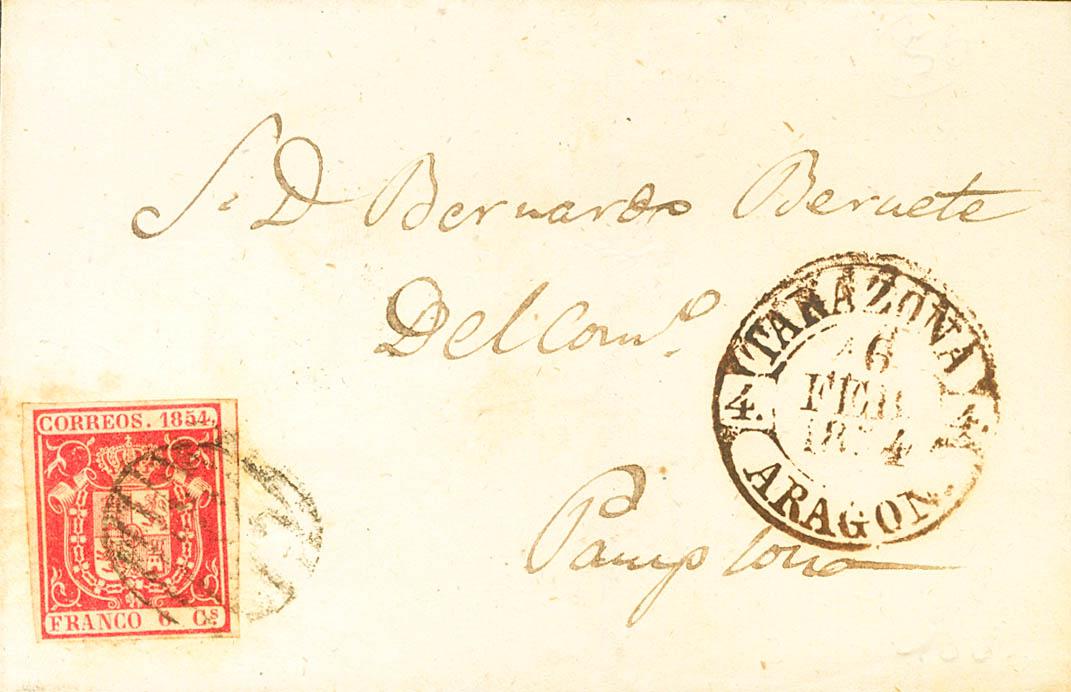 S. D Bernardo Beruete
Del Com.º
Pamplona
TARAZONA
4.
16
FEB.
1854
ARAGON.
CORREOS. 1854.
FRANCO 6 Cs